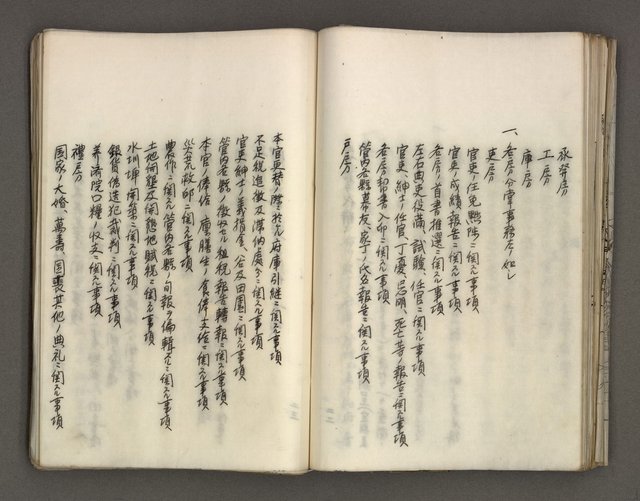 承發房
工房
庫房
一、各房分掌事務左ノ如シ
吏房
官吏ノ任免黜陟ニ関スル事項
官吏ノ成績報告ニ関スル事項
各房ノ首書推選ニ関スル事項
左右典吏役満、試驗、任官ニ関スル事項
官吏、紳士ノ任官、丁憂、忌明、死亡等ノ報告ニ関スル事項
各房幇書入卯ニ関スル事項
管内各縣幕友、家丁ノ氏名報告ニ関スル事項
戸房
本官更替ノ際ニ於ケル府庫引継ニ関スル事項
不足税追徴及滞納處分ニ関スル事項
官吏紳士ノ義捐金、谷及田園ニ関スル事項
管内各縣ノ徴収セル租税報告轉報ニ関スル事項
本官ノ俸給、廩膳生ノ食俸支給ニ関スル事項
災荒救卹ニ関スル事項
農作ニ関スル管内各縣ノ旬報ヲ編輯スルニ関スル事項
土地開墾及開墾地賦税ニ関スル事項
水圳埤開築ニ関スル事項
銀貨偽造犯裁判ニ関スル事項
養済院口糧ノ収支ニ関スル事項
禮房
国家ノ大婚、萬壽、国喪其他ノ典礼ニ関スル事項